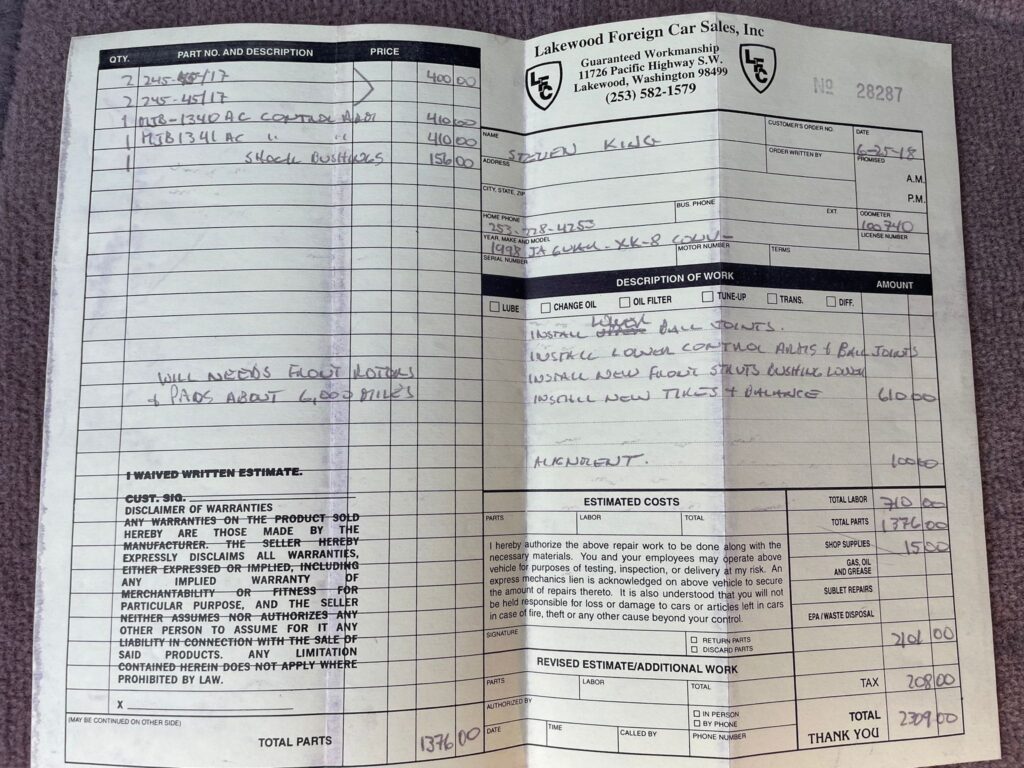 QTY. PART NO. AND DESCRIPTION PRICE
2 245-45/17 400 00
2 245-45/17
1 MJB-1340 AC CONTROL ARM 410 00
1 MJB 1341 AC " " 410 00
1 SHOCK BUSHINGS 156 00
WILL NEEDS FRONT ROTORS
& PADS ABOUT 6,000 MILES
I WAIVED WRITTEN ESTIMATE.
CUST. SIG.
DISCLAIMER OF WARRANTIES
ANY WARRANTIES ON THE PRODUCT SOLD
HEREBY ARE THOSE MADE BY THE
MANUFACTURER. THE SELLER HEREBY
EXPRESSLY DISCLAIMS ALL WARRANTIES,
EITHER EXPRESSED OR IMPLIED, INCLUDING
ANY IMPLIED WARRANTY OF
MERCHANTABILITY OR FITNESS FOR
PARTICULAR PURPOSE, AND THE SELLER
NEITHER ASSUMES NOR AUTHORIZES ANY
OTHER PERSON TO ASSUME FOR IT ANY
LIABILITY IN CONNECTION WITH THE SALE OF
SAID PRODUCTS. ANY LIMITATION
CONTAINED HEREIN DOES NOT APPLY WHERE
PROHIBITED BY LAW.
X
(MAY BE CONTINUED ON OTHER SIDE)
TOTAL PARTS 1376 00
Lakewood Foreign Car Sales, Inc
Guaranteed Workmanship
11726 Pacific Highway S.W.
Lakewood, Washington 98499
(253) 582-1579
LFC
LFC
No 28287
NAME STEVEN KING
CUSTOMER'S ORDER NO.
DATE 6-25-18
ADDRESS
ORDER WRITTEN BY
PROMISED
A.M.
P.M.
CITY, STATE, ZIP
HOME PHONE 253-778-4253
BUS. PHONE
EXT.
ODOMETER 100740
YEAR, MAKE AND MODEL 1998 JAGUAR-XK-8 CONV-
MOTOR NUMBER
TERMS
LICENSE NUMBER
SERIAL NUMBER
DESCRIPTION OF WORK AMOUNT
LUBE CHANGE OIL OIL FILTER TUNE-UP TRANS. DIFF.
INSTALL LOWER BALL JOINTS.
INSTALL LOWER CONTROL ARMS & BALL JOINTS
INSTALL NEW FRONT STRUTS BUSHING LOWER
INSTALL NEW TIRES & BALANCE 610 00
ALIGNMENT. 100 00
ESTIMATED COSTS
PARTS LABOR TOTAL
I hereby authorize the above repair work to be done along with the
necessary materials. You and your employees may operate above
vehicle for purposes of testing, inspection, or delivery at my risk. An
express mechanics lien is acknowledged on above vehicle to secure
the amount of repairs thereto. It is also understood that you will not
be held responsible for loss or damage to cars or articles left in cars
in case of fire, theft or any other cause beyond your control.
SIGNATURE
RETURN PARTS
DISCARD PARTS
REVISED ESTIMATE/ADDITIONAL WORK
PARTS LABOR TOTAL
AUTHORIZED BY
IN PERSON
BY PHONE
DATE TIME CALLED BY PHONE NUMBER
TOTAL LABOR 710 00
TOTAL PARTS 1376 00
SHOP SUPPLIES 15 00
GAS, OIL
AND GREASE
SUBLET REPAIRS
EPA / WASTE DISPOSAL
2101 00
TAX 208 00
TOTAL 2309 00
THANK YOU